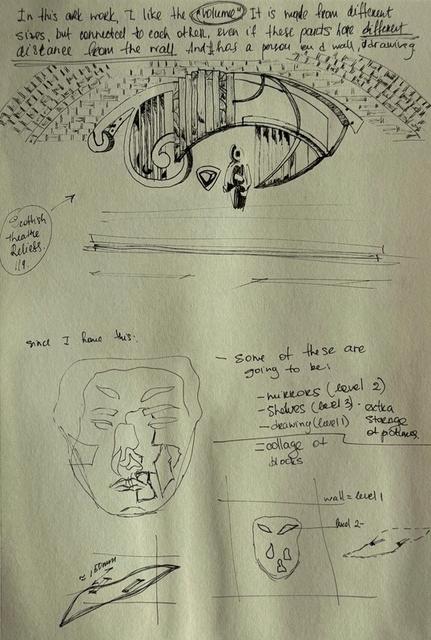 In this art work, I like the "volume". It is made from different
sizes, but connected to each other, even if these parts have different
distance from the wall. And it has a person and wall, drawing
Scottish
theatre
Reliess.
since I have this:
- some of these are
going to be:
- mirrors (level 2)
- shelves (level 3) - extra
storage
of
- drawing (level 1)
= collage of
blocks
wall = level 1
level 2-
≈ 150mm